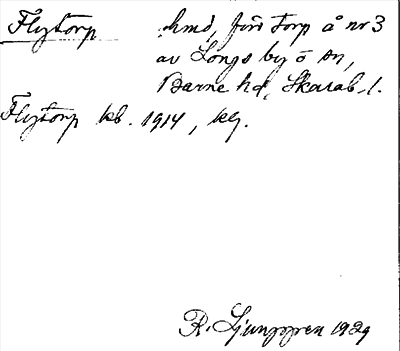 Flytorp hmd, förr torp å nr 3
av Longs by, ö sn,
Barne hd, Skarab. l.
Flytorp kb. 1914, kLj.
R. Ljunggren 1929